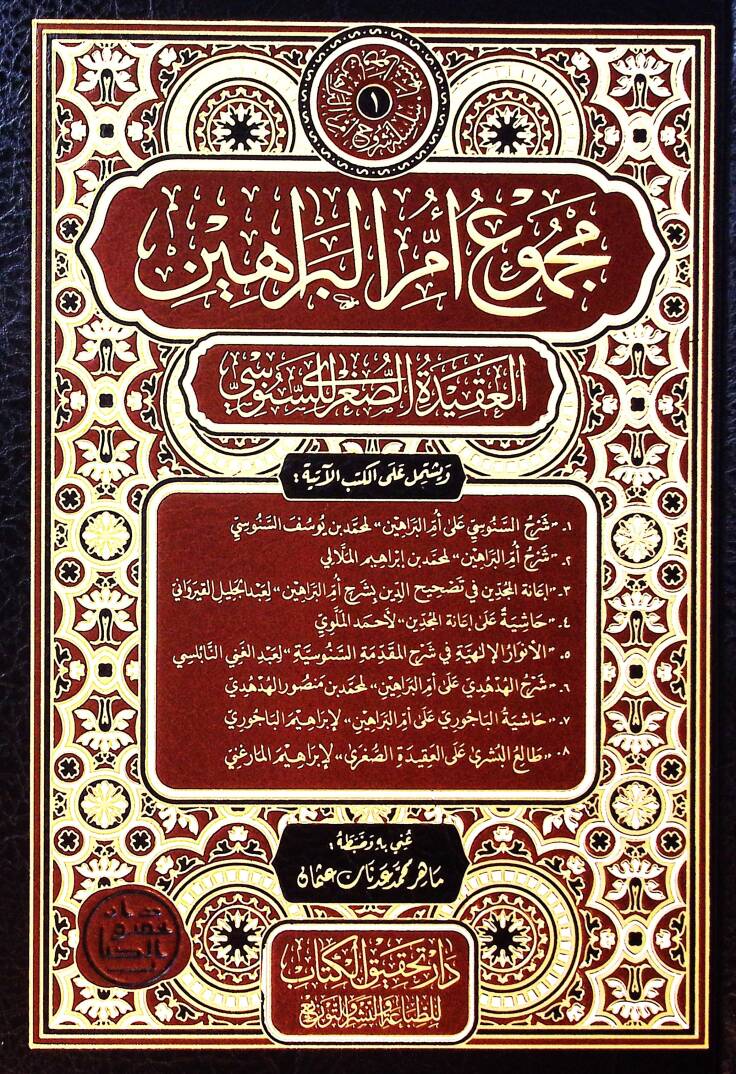 ١
سلسلة شروح أم البراهين
مجموع أم البراهين
العقيدة الصغرى للسنوسي
ويشتمل على الكتب الآتية:
١. «شَرْحُ السَّنُوسِيِّ عَلَى أُمِّ البَرَاهِين» لمحمَّد بن يُوسُف السَّنُوسِيِّ
٢. «شَرْحُ أُمِّ البَرَاهِين» لمحمَّد بن إبْرَاهِيم المَلَّالِي
٣. «إعَانة المُجِدِّين في تَصْحِيح الدِّين بِشَرحِ أُمِّ البَرَاهِين» لِعَبْد الجَلِيل القيروَاني
٤. «حَاشِيَةٌ عَلَى إعَانة المُجِدِّين» لأحمَد المَلَّوِيِّ
٥. «الأنْوَارُ الإلٰهيَّة في شَرْح المقَدّمَة السَّنُوسِيَّة» لعَبد الغَنِي النَّابُلسِي
٦. «شَرْحُ الهُدْهُدِيِّ عَلَى أُمِّ البَرَاهِين» لمحمَّد بن مَنصُور الهُدْهُدِيّ
٧. «حَاشيَة البَاجُوريِّ عَلَى أمِّ البَرَاهِين» لإبرَاهِيم البَاجُوريّ
٨. «طَالِعُ البُشْرَى عَلَى العَقِيدَة الصُّغْرَى» لإبرَاهِيْم المَارغنِيّ
عُني بِه وَضَبَطَهُ:
ماهر محمد عدنان عثمان
دار تحقيق الكتاب
للطباعة والنشر والتوزيع